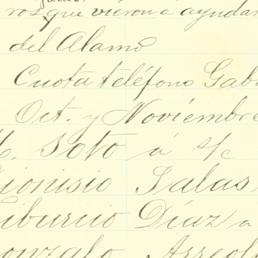 ros que vieron a ayudar
del Alamo
Cuota teléfono Gab
Oct. y Noviembre
Soto á s/c
ionisio Salas
iburcio Díaz a
onzalo Arreol